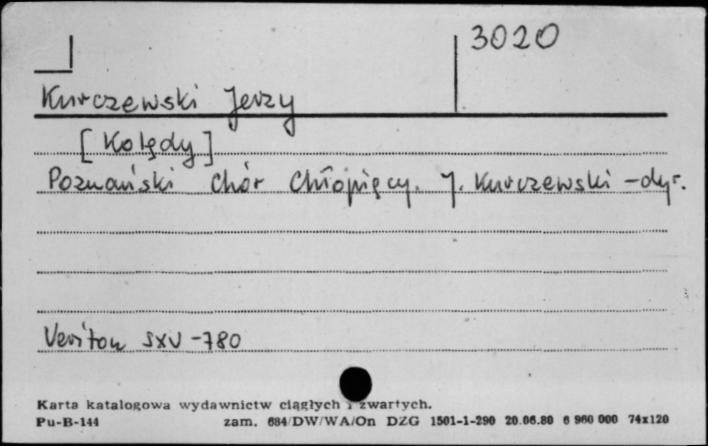 3020
Kurczewski Jerzy
[Kolędy]
Poznański Chór Chłopięcy. J. Kurczewski – dyr.
Veriton SXV - 780
Karta katalogowa wydawnictw ciągłych i zwartych.
Pu-B-144 zam. 684/DW/WA/On DZG 1501-1-290 20.06.80 6 960 000 74x120